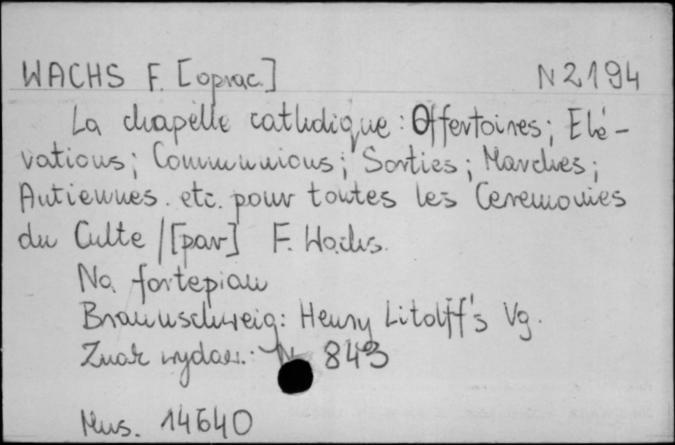 WACHS F. [oprac.]
N 2194
La chapelle catholique: Offertoires; Elé-
vations; Communions; Sorties; Marches;
Antiennes. etc. pour toutes les Ceremonies
du Culte / [par] F. Wachs.
Na fortepian
Braunschweig: Henry Litolff's Vg.
Znak wydaw.: N 843
Mus. 14640